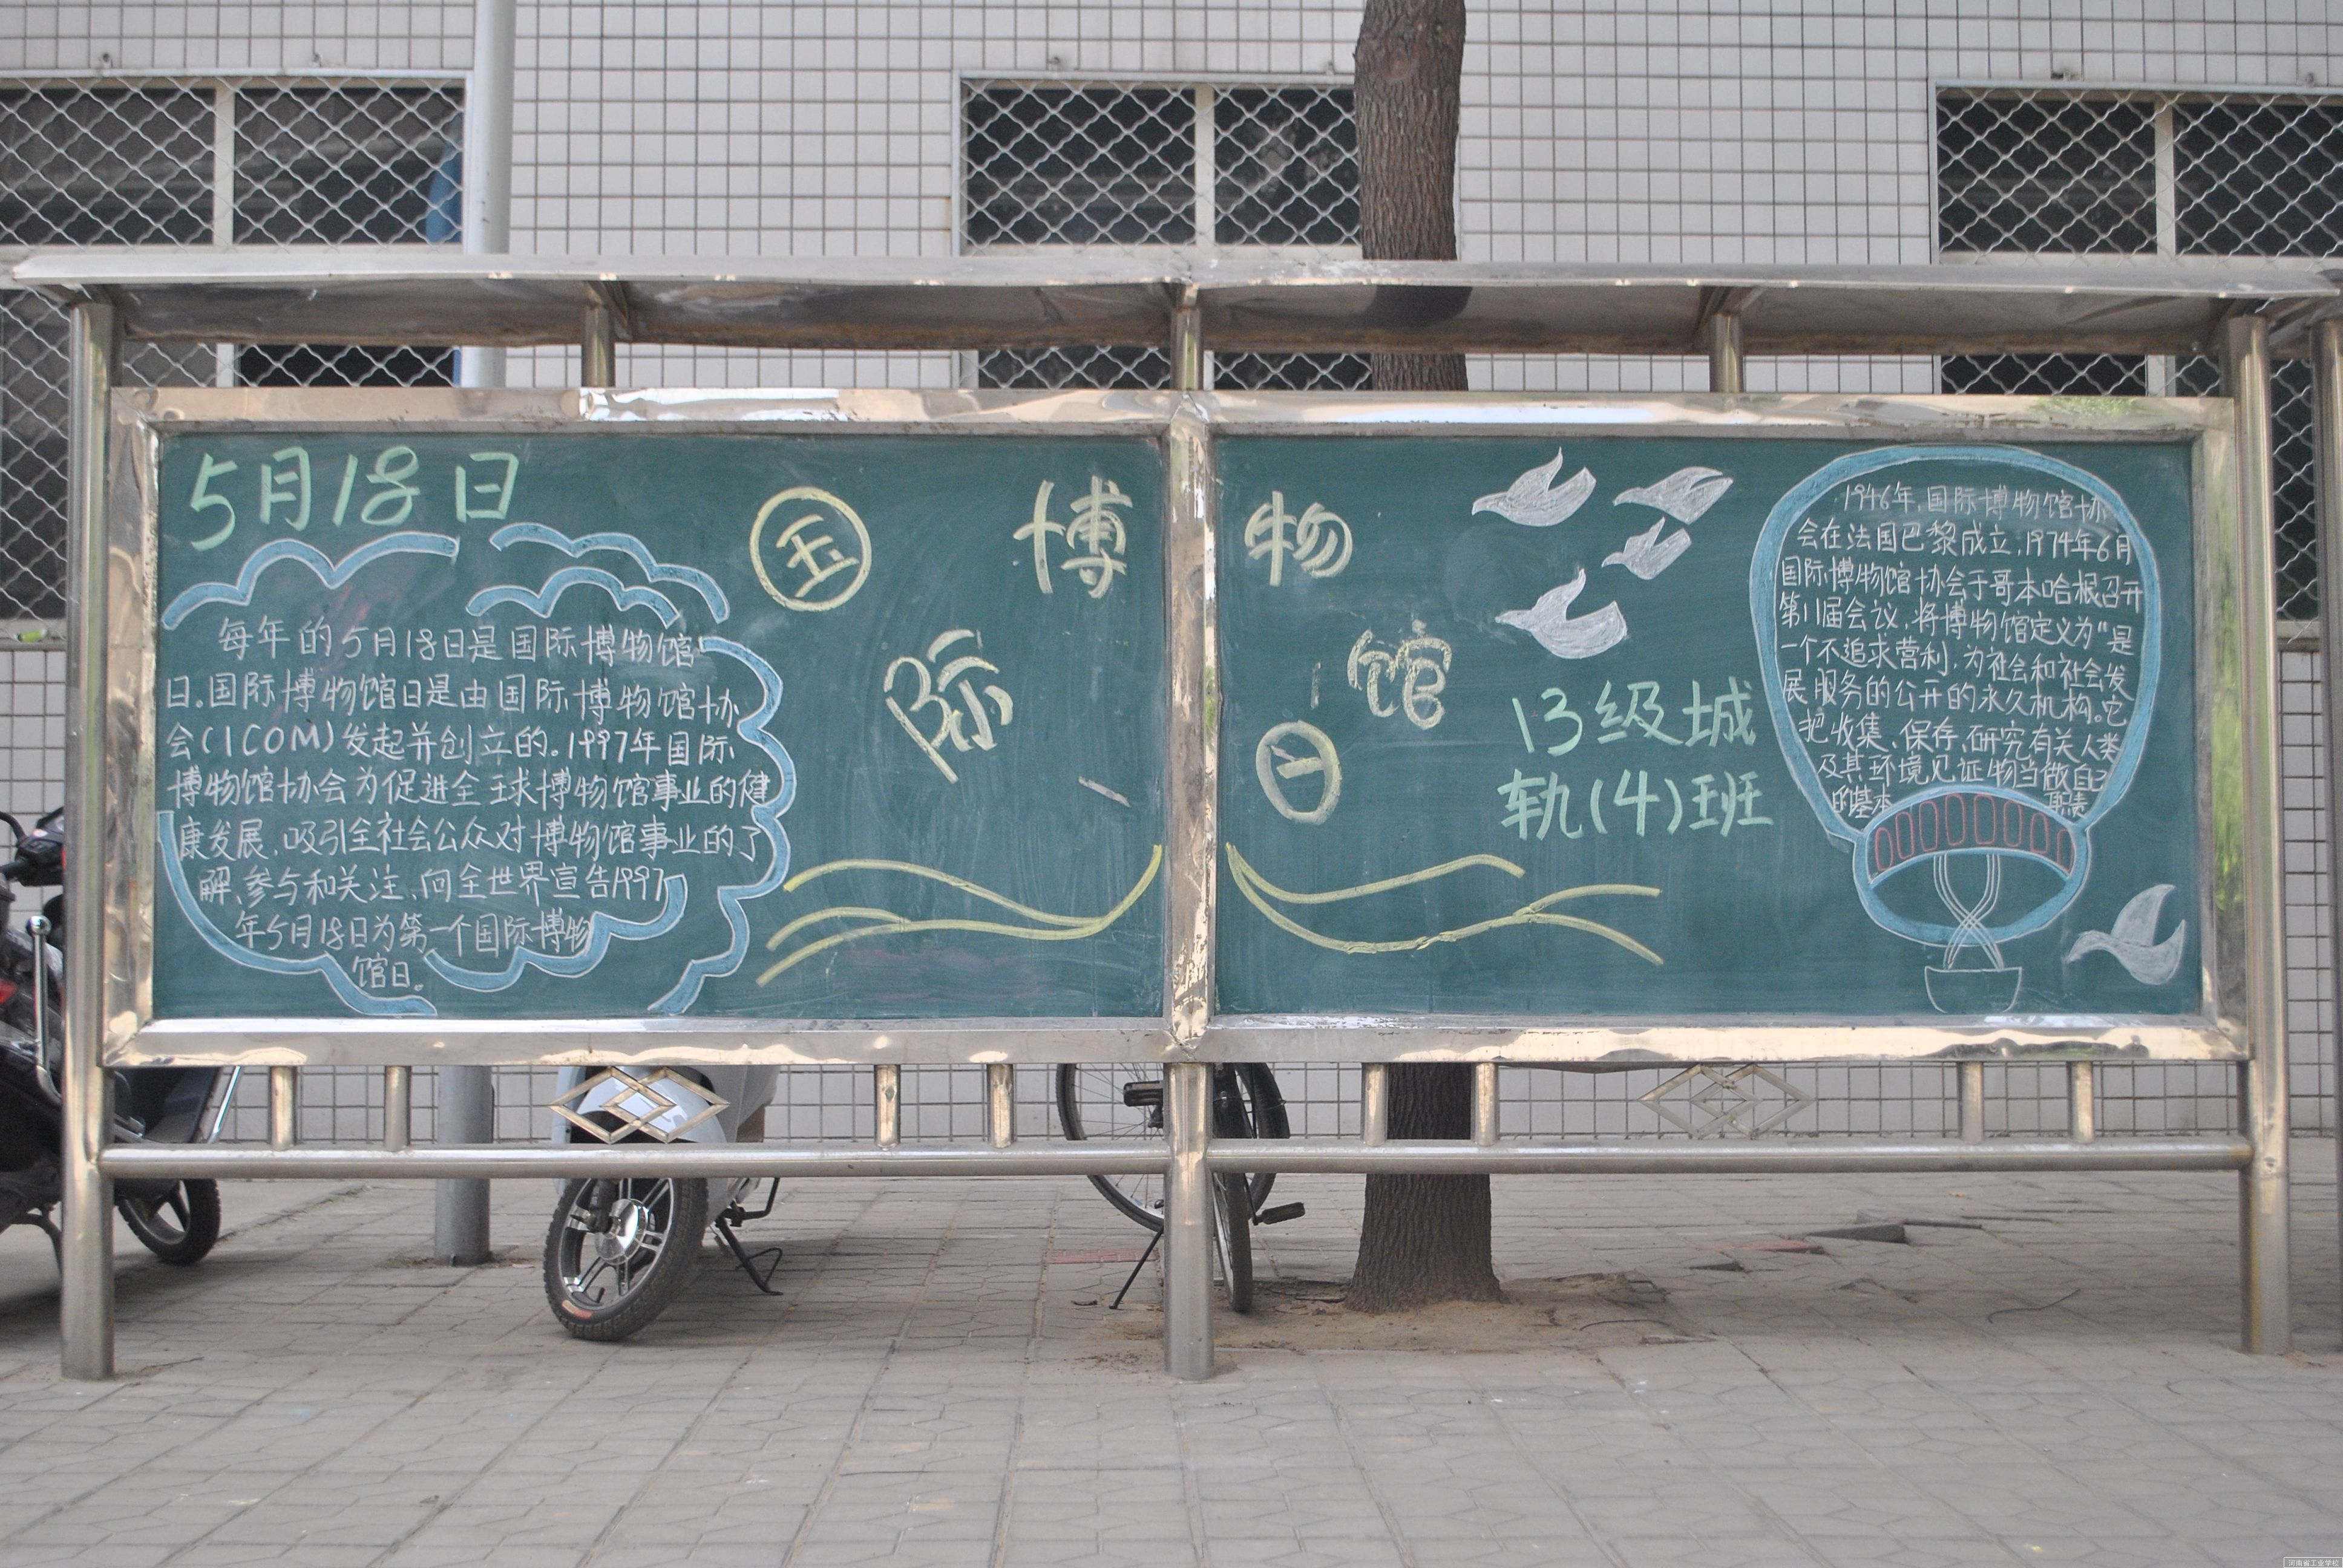 5月18日
每年的5月18日是国际博物馆
日.国际博物馆日是由国际博物馆协
会(ICOM)发起并创立的.1997年国际
博物馆协会为促进全球博物馆事业的健
康发展.吸引全社会公众对博物馆事业的了
解、参与和关注、向全世界宣告1997
年5月18日为第一个国际博物
馆日。
国际博物馆日
13级城
轨(4)班
1946年,国际博物馆协
会在法国巴黎成立;1974年6月
国际博物馆协会于哥本哈根召开
第11届会议,将博物馆定义为"是
一个不追求营利,为社会和社会发
展服务的公开的永久机构。它
把收集、保存、研究有关人类
及其环境见证物当做自己
的基本 职责
河南省工业学校